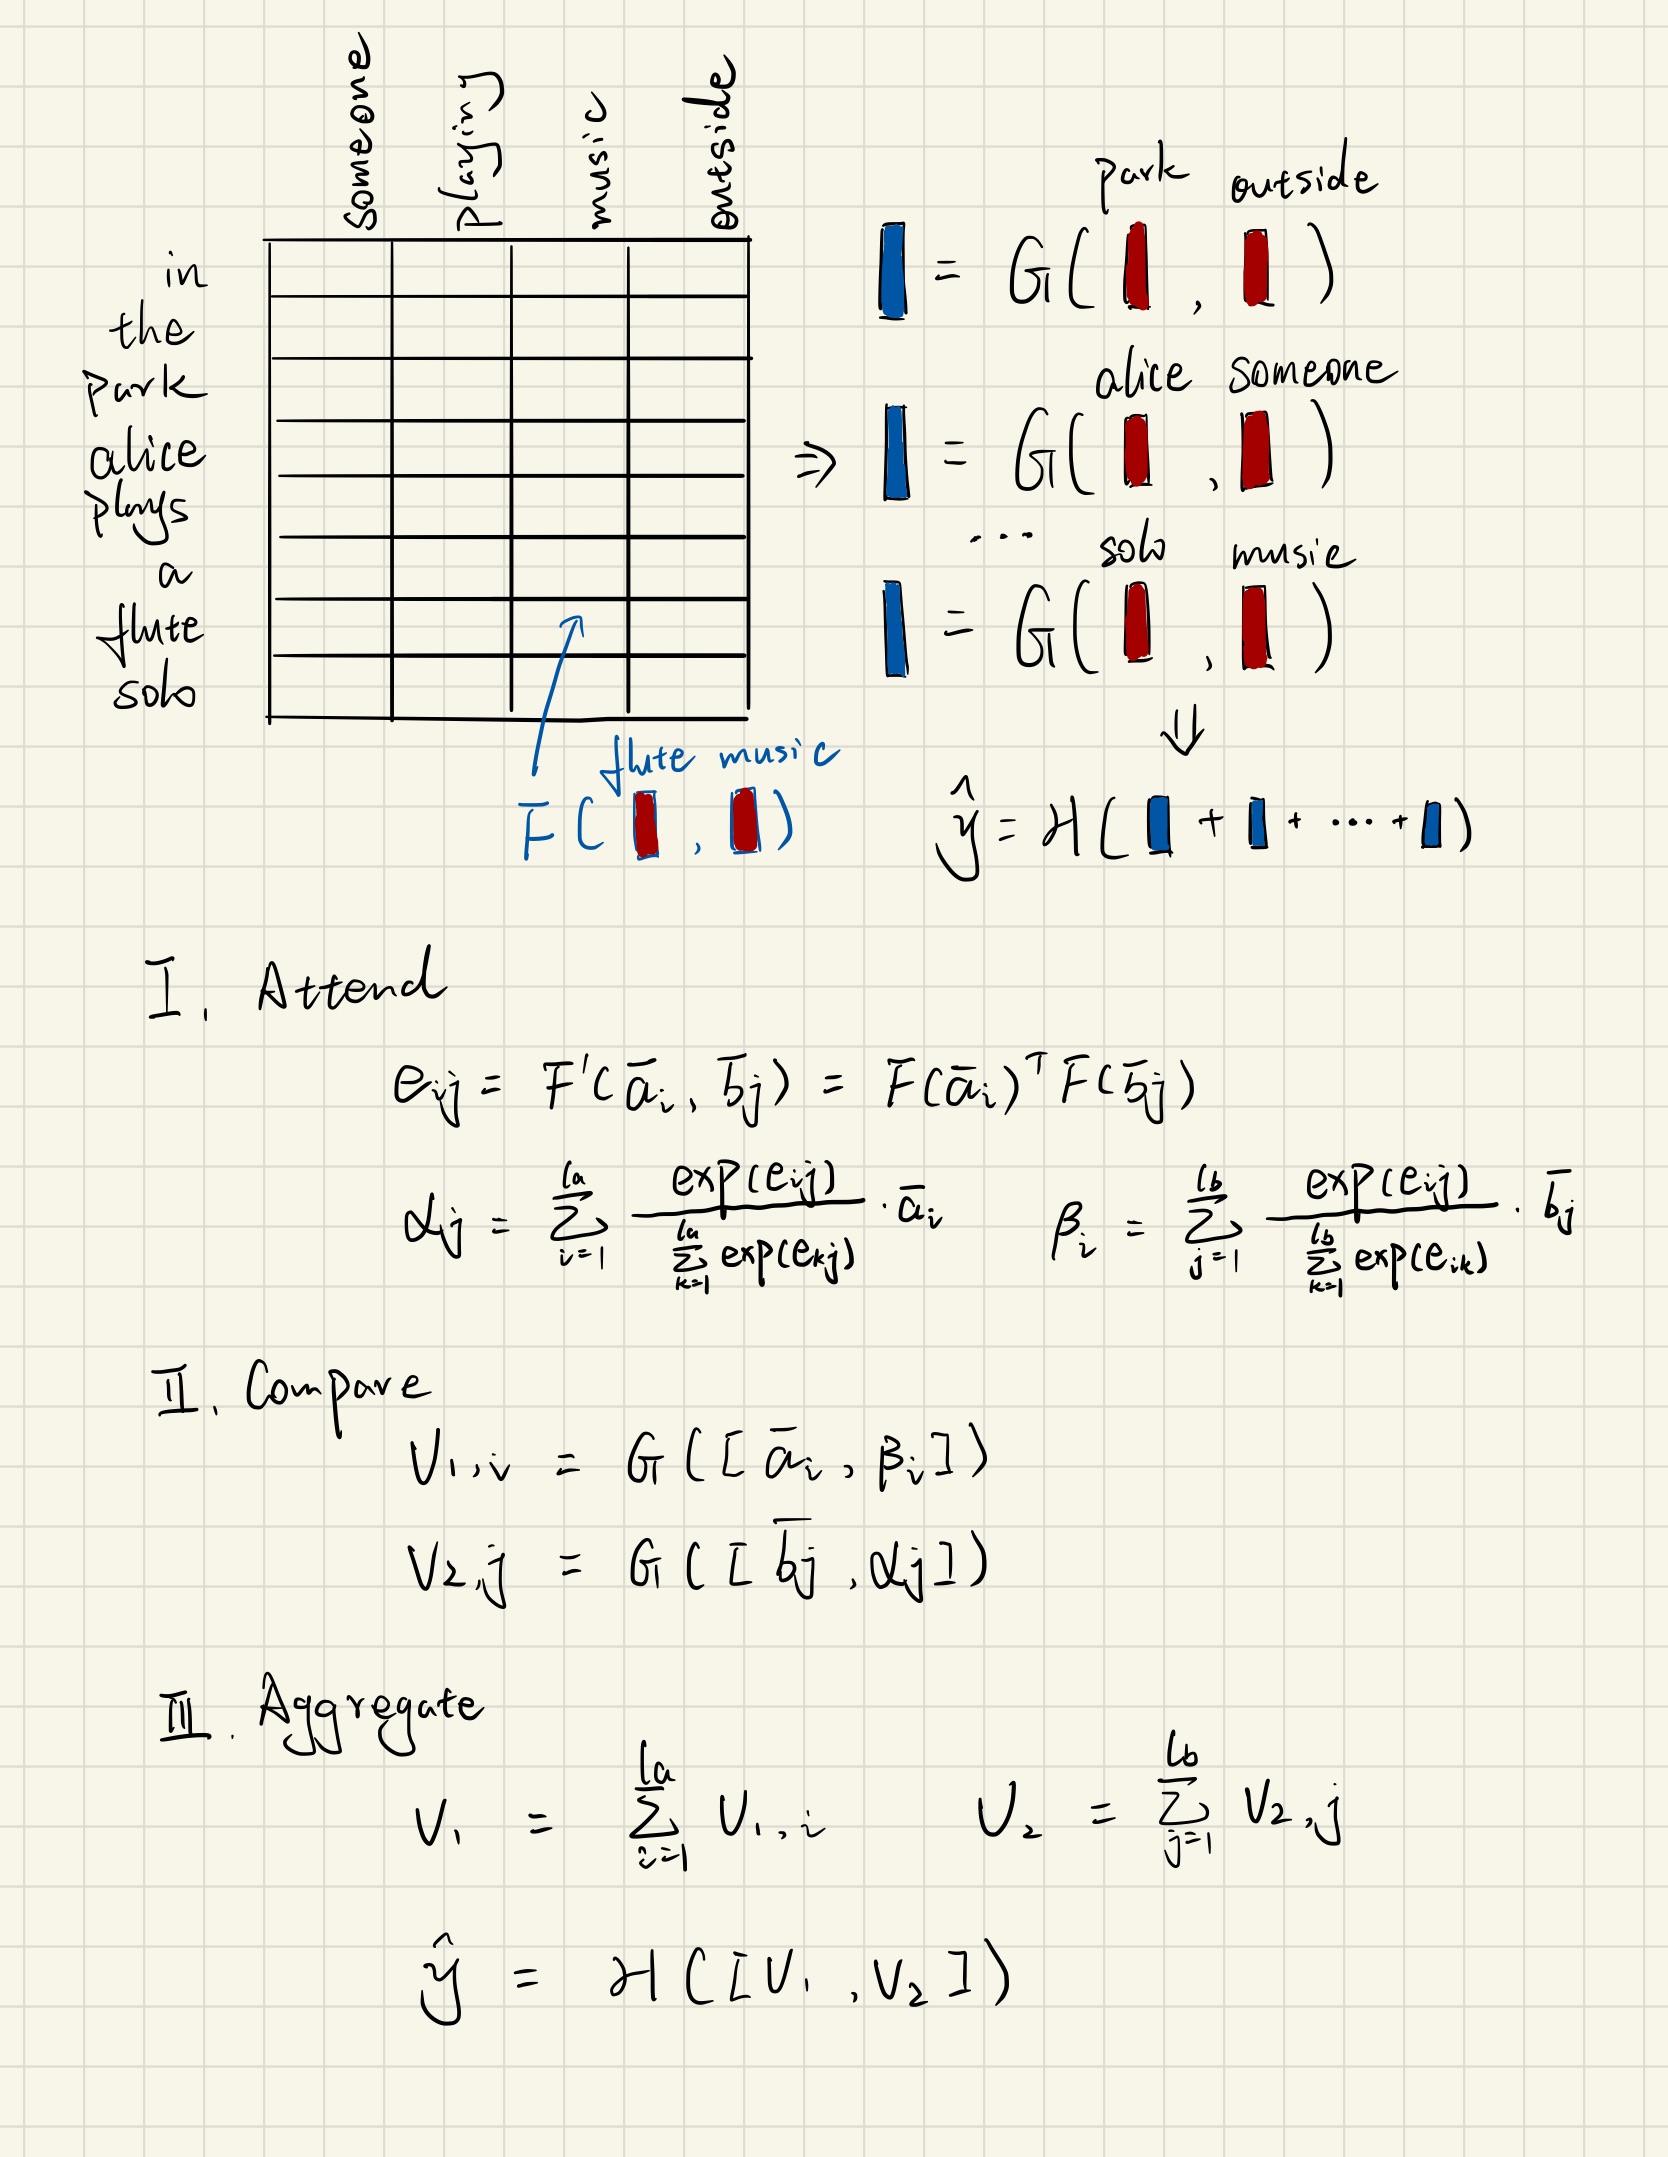 someone playing music outside
in
the
park
alice
plays
a
flute
solo
flute music
F( , )
park outside
= G( , )
alice someone
⇒ = G( , )
... solo music
= G( , )
⇓
ŷ = H( + + ... + )
I. Attend
eᵢⱼ = F'(āᵢ, b̄ⱼ) = F(āᵢ)ᵀ F(b̄ⱼ)
αⱼ = ∑_{i=1}^{la} exp(eᵢⱼ) / ∑_{k=1}^{la} exp(eₖⱼ) · āᵢ βᵢ = ∑_{j=1}^{lb} exp(eᵢⱼ) / ∑_{k=1}^{lb} exp(eᵢₖ) · b̄ⱼ
II. Compare
V₁,ᵢ = G([āᵢ, βᵢ])
V₂,ⱼ = G([b̄ⱼ, αⱼ])
III. Aggregate
V₁ = ∑_{i=1}^{la} V₁,ᵢ V₂ = ∑_{j=1}^{lb} V₂,ⱼ
ŷ = H([V₁, V₂])